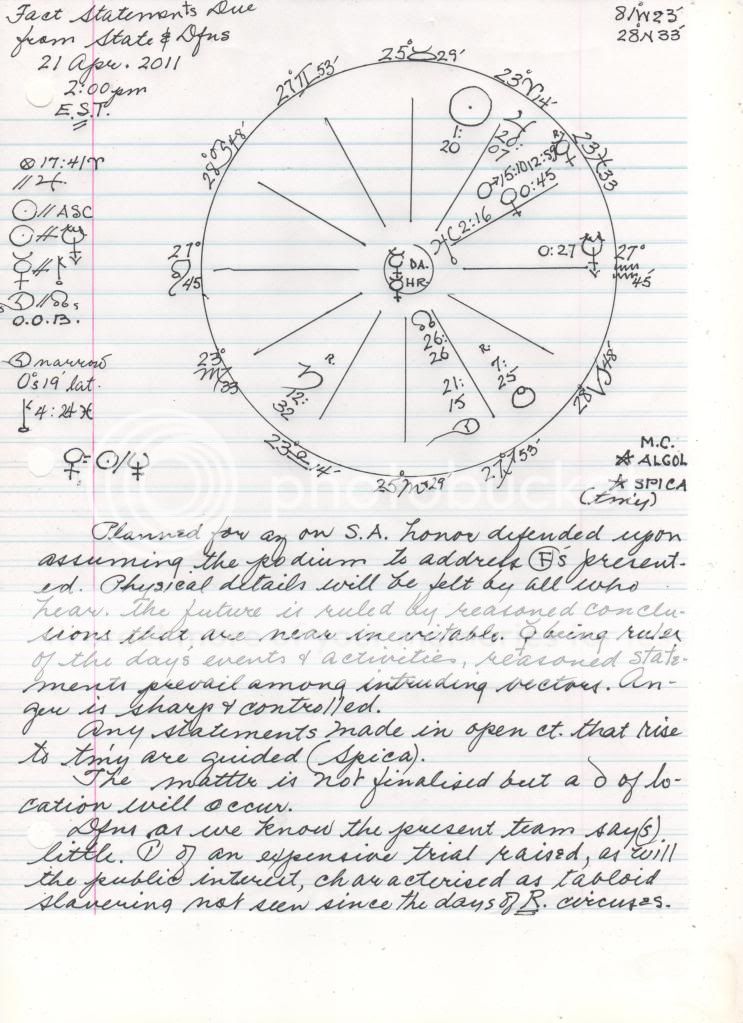 Fact Statements Due
from State & Dfns
21 Apr. 2011
2:00pm
E.S.T.
81W23'
28N33'
25°♉29'
27°♊53'
23°♈14'
28°♋48'
23♓33
⊗17:41♈
//♃
☉//ASC
☉#
☿#
O.O.B.
narrow
0°s19' lat.
4:24♓
☉
1:
20
♃
20:
07
♂15:10
12:59
♀0:45
2:16
0:27
27°
♒
45'
27°
♌
45
DA.
HR.
23°
♍
33
♄ R.
12:
32
☊
26:
26
21:
15
R.
7:
25
28°♑48'
23♎14'
25♏29
27♐53'
M.C.
☆ ALGOL
☆ SPICA
(tmy)
☿=☉/♆
Planned for an on S.A. honor defended upon
assuming the podium to address Ⓕ's present-
ed. Physical details will be felt by all who
hear. The future is ruled by reasoned conclu-
sions that are near inevitable. ☿ being ruler
of the day's events & activities, reasoned state-
ments prevail among intruding vectors. An-
ger is sharp & controlled.
Any statements made in open ct. that rise
to tmy are guided (Spica).
The matter is not finalised but a ∂ of lo-
cation will occur.
Dfns as we know the present team say(s)
little. of an expensive trial raised, as will
the public interest, characterised as tabloid
slavering not seen since the days of R. circuses.
photobucket